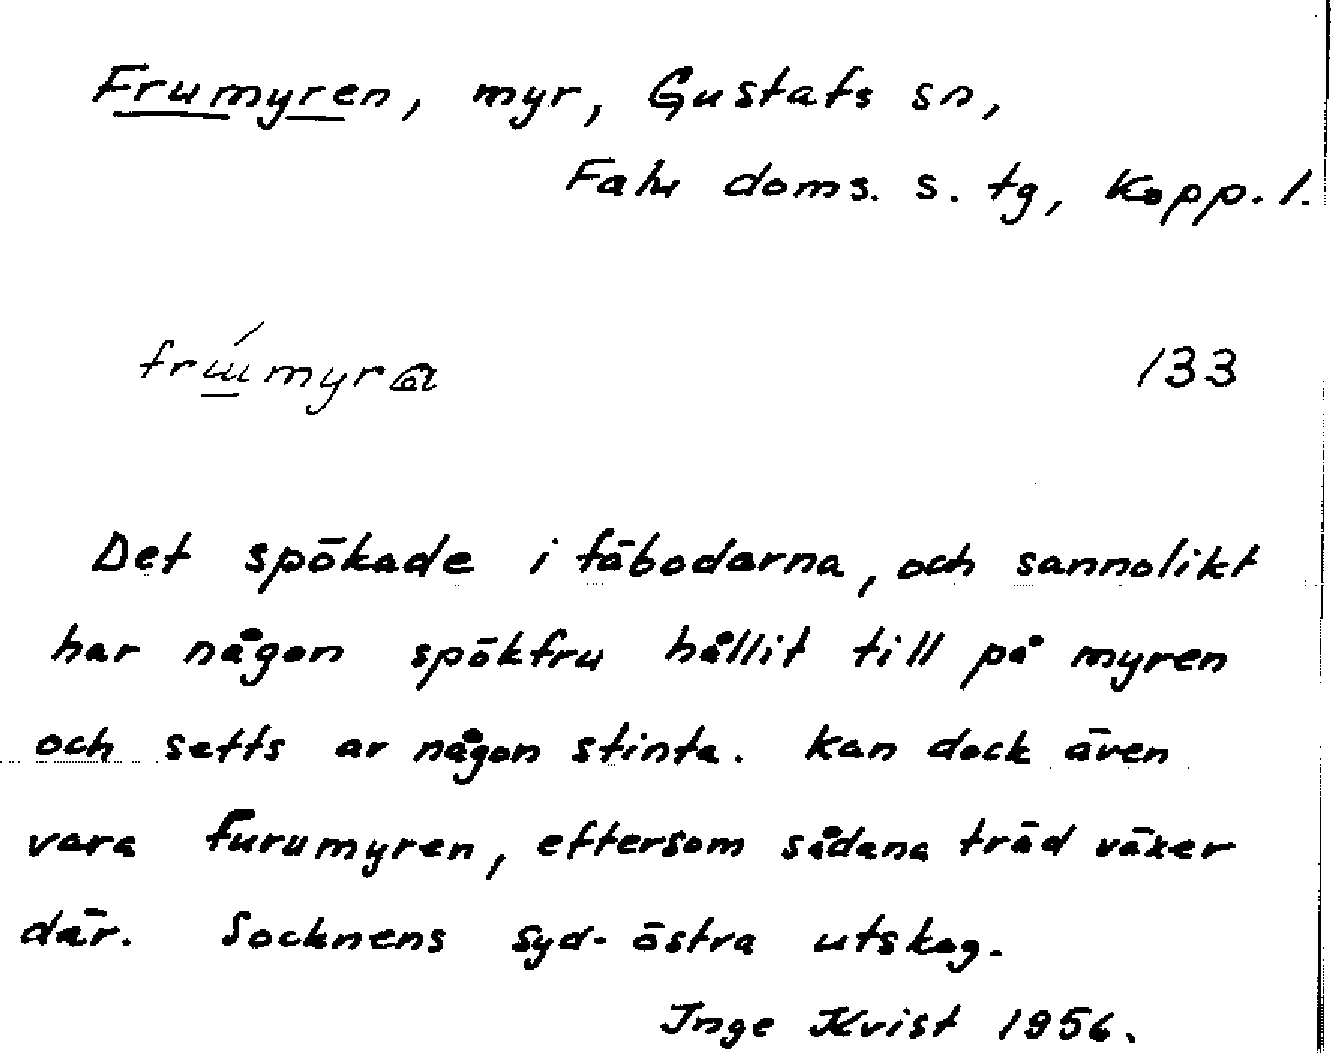 Frumyren, myr, Gustafs sn,
Falu doms. s. tg, Kopp. l.
133
Det spökade i fäbodarna, och sannolikt
har någon spökfru hållit till på myren
och setts av någon stinta. Kan dock även
vara Furumyren, eftersom sådana träd växer
där. Socknens syd-östra utskog.
Inge Kvist 1956.